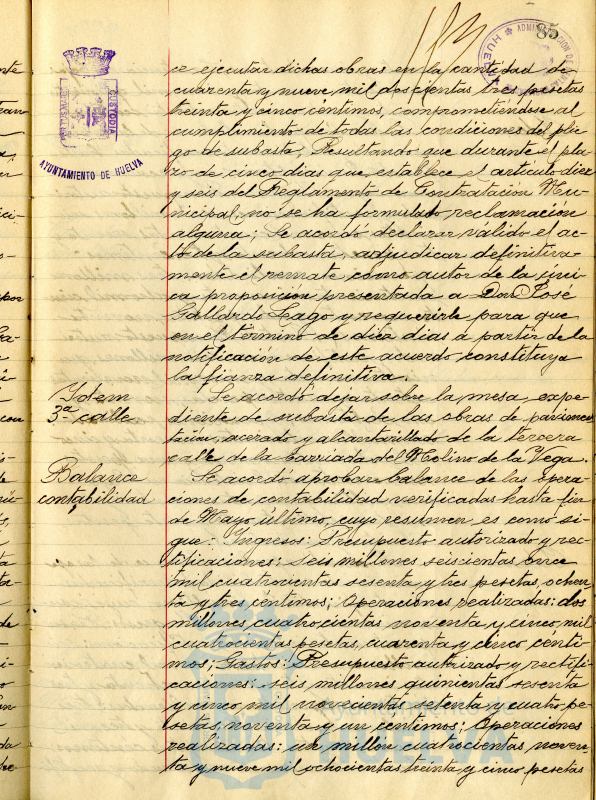 85
CUSTODIA
AYUNTAMIENTO DE HUELVA
ADMINISTRACION DE
HUELVA
ce ejecutar dichas obras en la cantidad de
cuarenta y nueve mil doscientas tres pesetas
treinta y cinco céntimos, comprometiéndose al
cumplimiento de todas las condiciones del plie
go de subasta. Resultando que durante el pla
zo de cinco dias que establece el artículo diez
y seis del Reglamento de Contratación Mu-
nicipal, no se ha formulado reclamación
alguna; Se acordó declarar válido el ac-
to de la subasta, adjudicar definitiva-
mente el remate, como autor de la úni-
ca proposición presentada a Don José
Gallardo Lago y requerirle para que
en el término de diez dias a partir de la
notificación de este acuerdo, constituya
la fianza definitiva.
Itém
3ª calle
Se acordó dejar sobre la mesa, expe-
diente de subasta de las obras de pavimen
tación, acerado y alcantarillado de la tercera
calle de la barriada del Molino de la Vega.
Balance
contabilidad
Se acordó aprobar balance de las opera-
ciones de contabilidad verificadas hasta fin
de Mayo último, cuyo resumen es como si-
gue: Ingresos: Presupuesto autorizado y rec-
tificaciones: seis millones seiscientas once
mil cuatrocientas sesenta y tres pesetas, ochen
ta y tres céntimos; Operaciones realizadas: dos
millones cuatrocientas noventa y cinco mil
cuatrocientas pesetas, cuarenta y cinco cénti-
mos; Gastos: Presupuesto autorizado y rectifi-
caciones: seis millones quinientas sesenta
y cinco mil novecientas setenta y cuatro pe-
setas, noventa y un céntimos; Operaciones
realizadas: un millón cuatrocientas noven-
ta y nueve mil ochocientas treinta y cinco pesetas
HUELVA